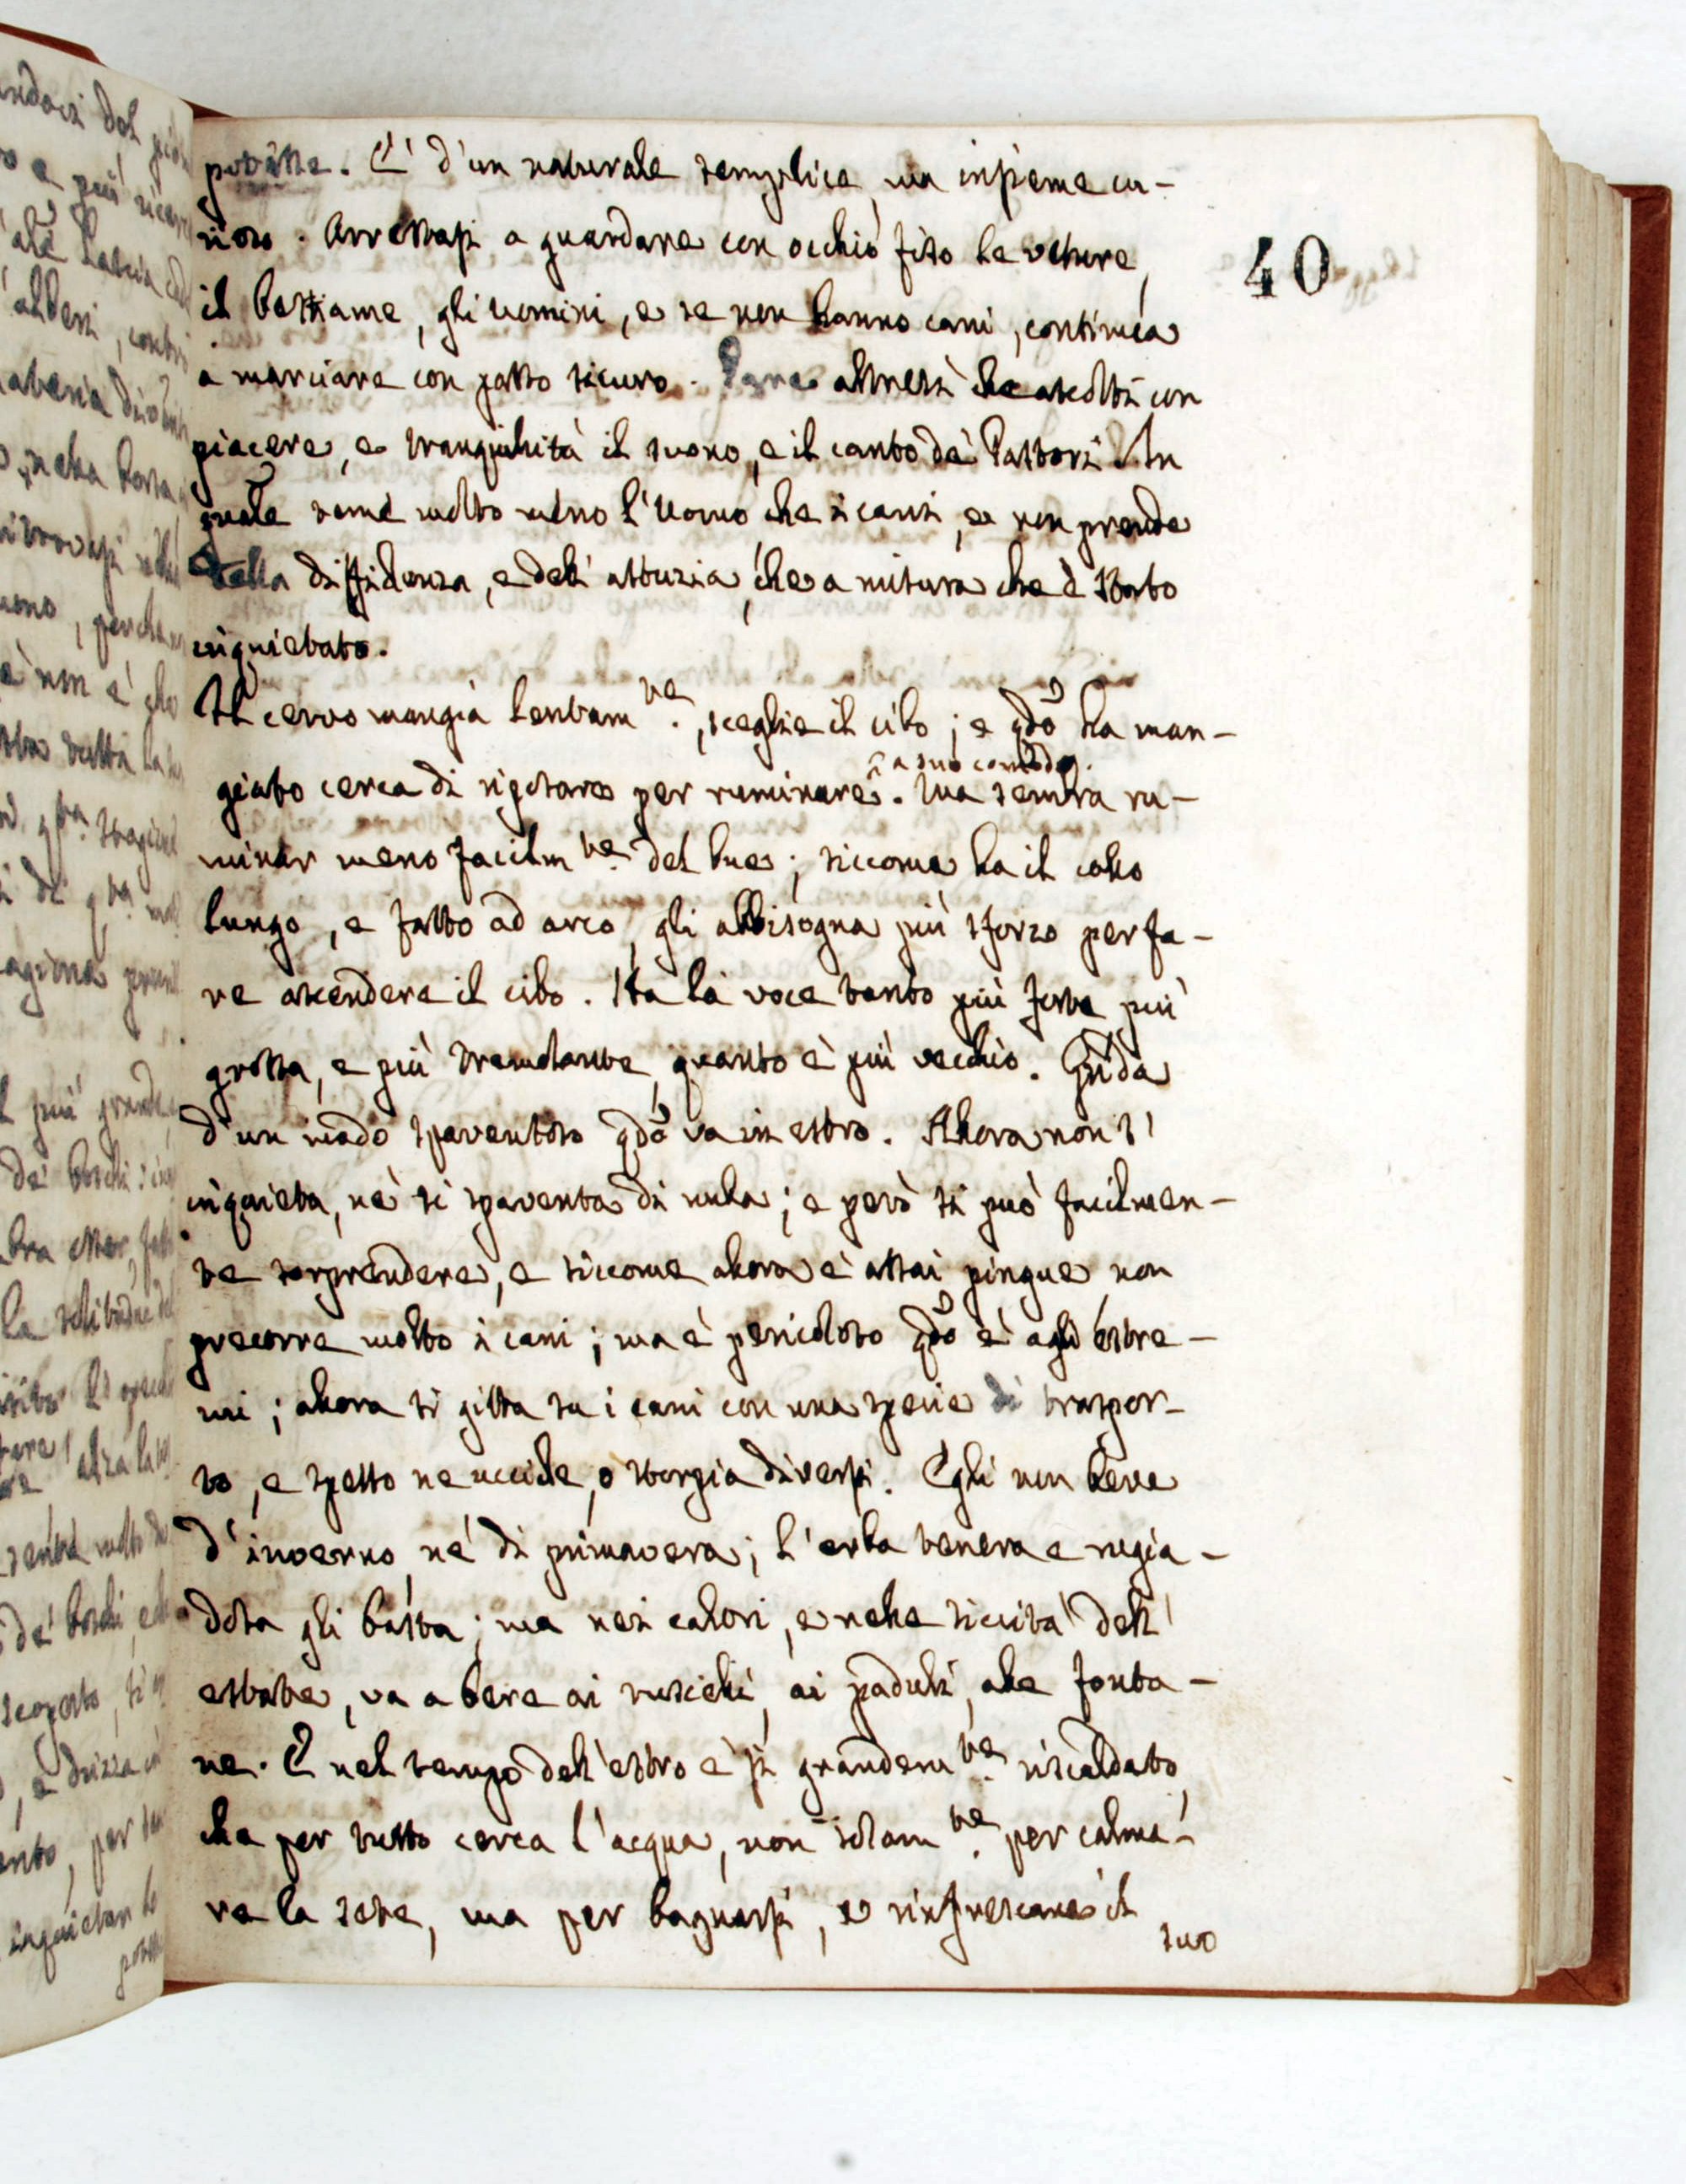 potesse. È d'un naturale semplice, ma insieme cu-
rioso. Arrestasi a guardare con occhio fiso le vetture,
il bestiame, gli uomini, e se non hanno cani, continua
a marciare con passo sicuro. Pare altresì che ascolti con
piacere, e tranquilità il suono, e il canto de' Pastori. In
grale teme molto meno l'Uomo che i cani, e non prende
della diffidenza, e dell'astuzia, che a misura che è stato
inquietato.
Il cervo mangia lentam.te, sceglie il cibo; e qdo ha man-
a suo comodo.
giato cerca di rigettare per ruminare. Ma sembra ru-
minar meno facilm.te del bue; siccome ha il collo
lungo, e fatto ad arco, gli abbisogna più sforzo per fa-
re ascendere il cibo. Ha la voce tanto più forte più
grossa, e più tremolante, quanto è più vecchio. Grida
d'un modo spaventoso qdo va in estro. Allora non s'
inquieta, nè si spaventa di nulla; e però si può facilmen-
te sorprendere, e siccome allora è assai pingue, non
precorre molto i cani; ma è pericoloso qdo è agli estre-
mi; allora si gitta su i cani con una specie di traspor-
to, e spesso ne uccide, o storpia diversi. Egli non beve
d'inverno, nè di primavera; l'erba tenera e rugia-
dosa gli basta; ma nei calori, e nelle siccità dell'
estate, va a bere ai ruscelli, ai paduli, alle fonta-
ne. E nel tempo dell'estro è sì grandem.te riscaldato,
che per tutto cerca l'acqua, non solam.te per calma-
re la sete, ma per bagnarsi, e rinfrescare il
suo
40